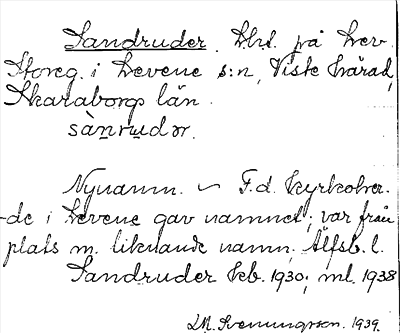 Sandruder. hmt. på Lev.
Storeg. i Levene s:n, Viste härad,
Skaraborgs län.
sànrudər.
Nynamn. – F.d. kyrkoher-
de i Levene gav namnet; var från
plats m. liknande namn, Älfsb. l.
Sandruder Ekb. 1930; ml. 1938
Svenningsson. 1939.